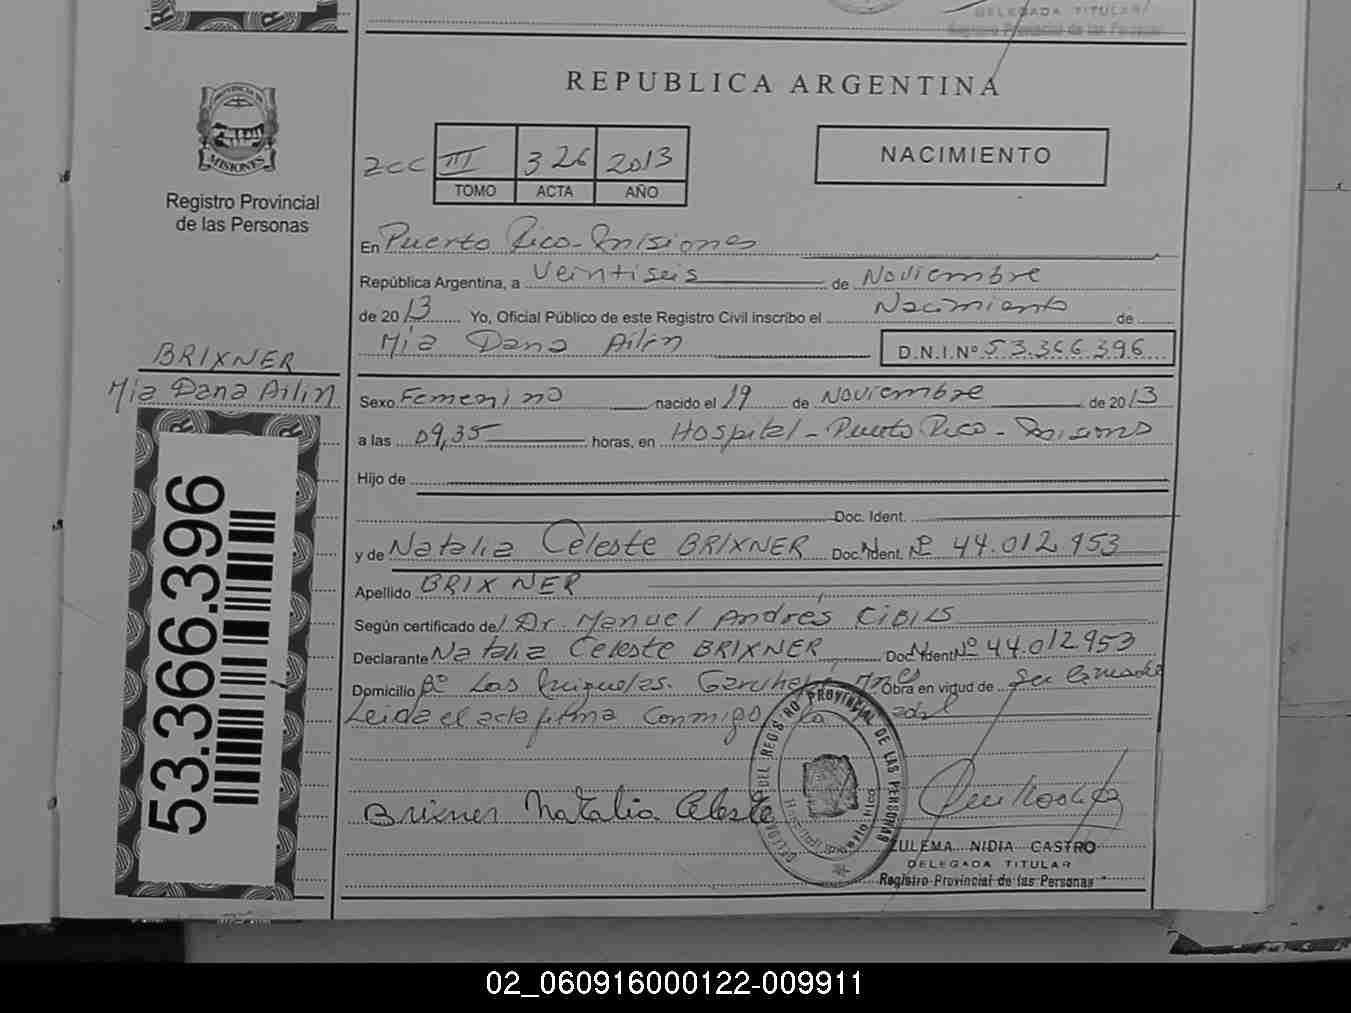 DELEGADA TITULAR
Registro Provincial de las Personas
REPUBLICA ARGENTINA
PROVINCIA DE
MISIONES
Registro Provincial
de las Personas
2cc III 326 2013
TOMO ACTA AÑO
NACIMIENTO
En Puerto Rico - Misiones
República Argentina, a veintiseis de Noviembre
de 2013 Yo, Oficial Público de este Registro Civil inscribo el Nacimiento de
Mia Dana Ailin D.N.I.Nº 53.366.396
BRIXNER
Mia Dana Ailin
Sexo Femenino nacido el 19 de Noviembre de 2013
a las 09,35 horas, en Hospital - Puerto Rico - Misiones
Hijo de
Doc. Ident.
y de Natalia Celeste BRIXNER Doc. Ident. Nº 44.012.953
Apellido BRIXNER
Según certificado del Dr. Manuel Andrés CIBILS
Declarante Natalia Celeste BRIXNER Doc. Ident. Nº 44.012953
Domicilio Bº Los Garuhapé Mnes Obra en virtud de
Leida el acta firma conmigo la
53.366.396
Brixner Natalia Celeste
DELEGACION DEL REGISTRO PROVINCIAL DE LAS PERSONAS
Hospital Puerto Rico
ZULEMA NIDIA CASTRO
DELEGADA TITULAR
Registro Provincial de las Personas
02_060916000122-009911